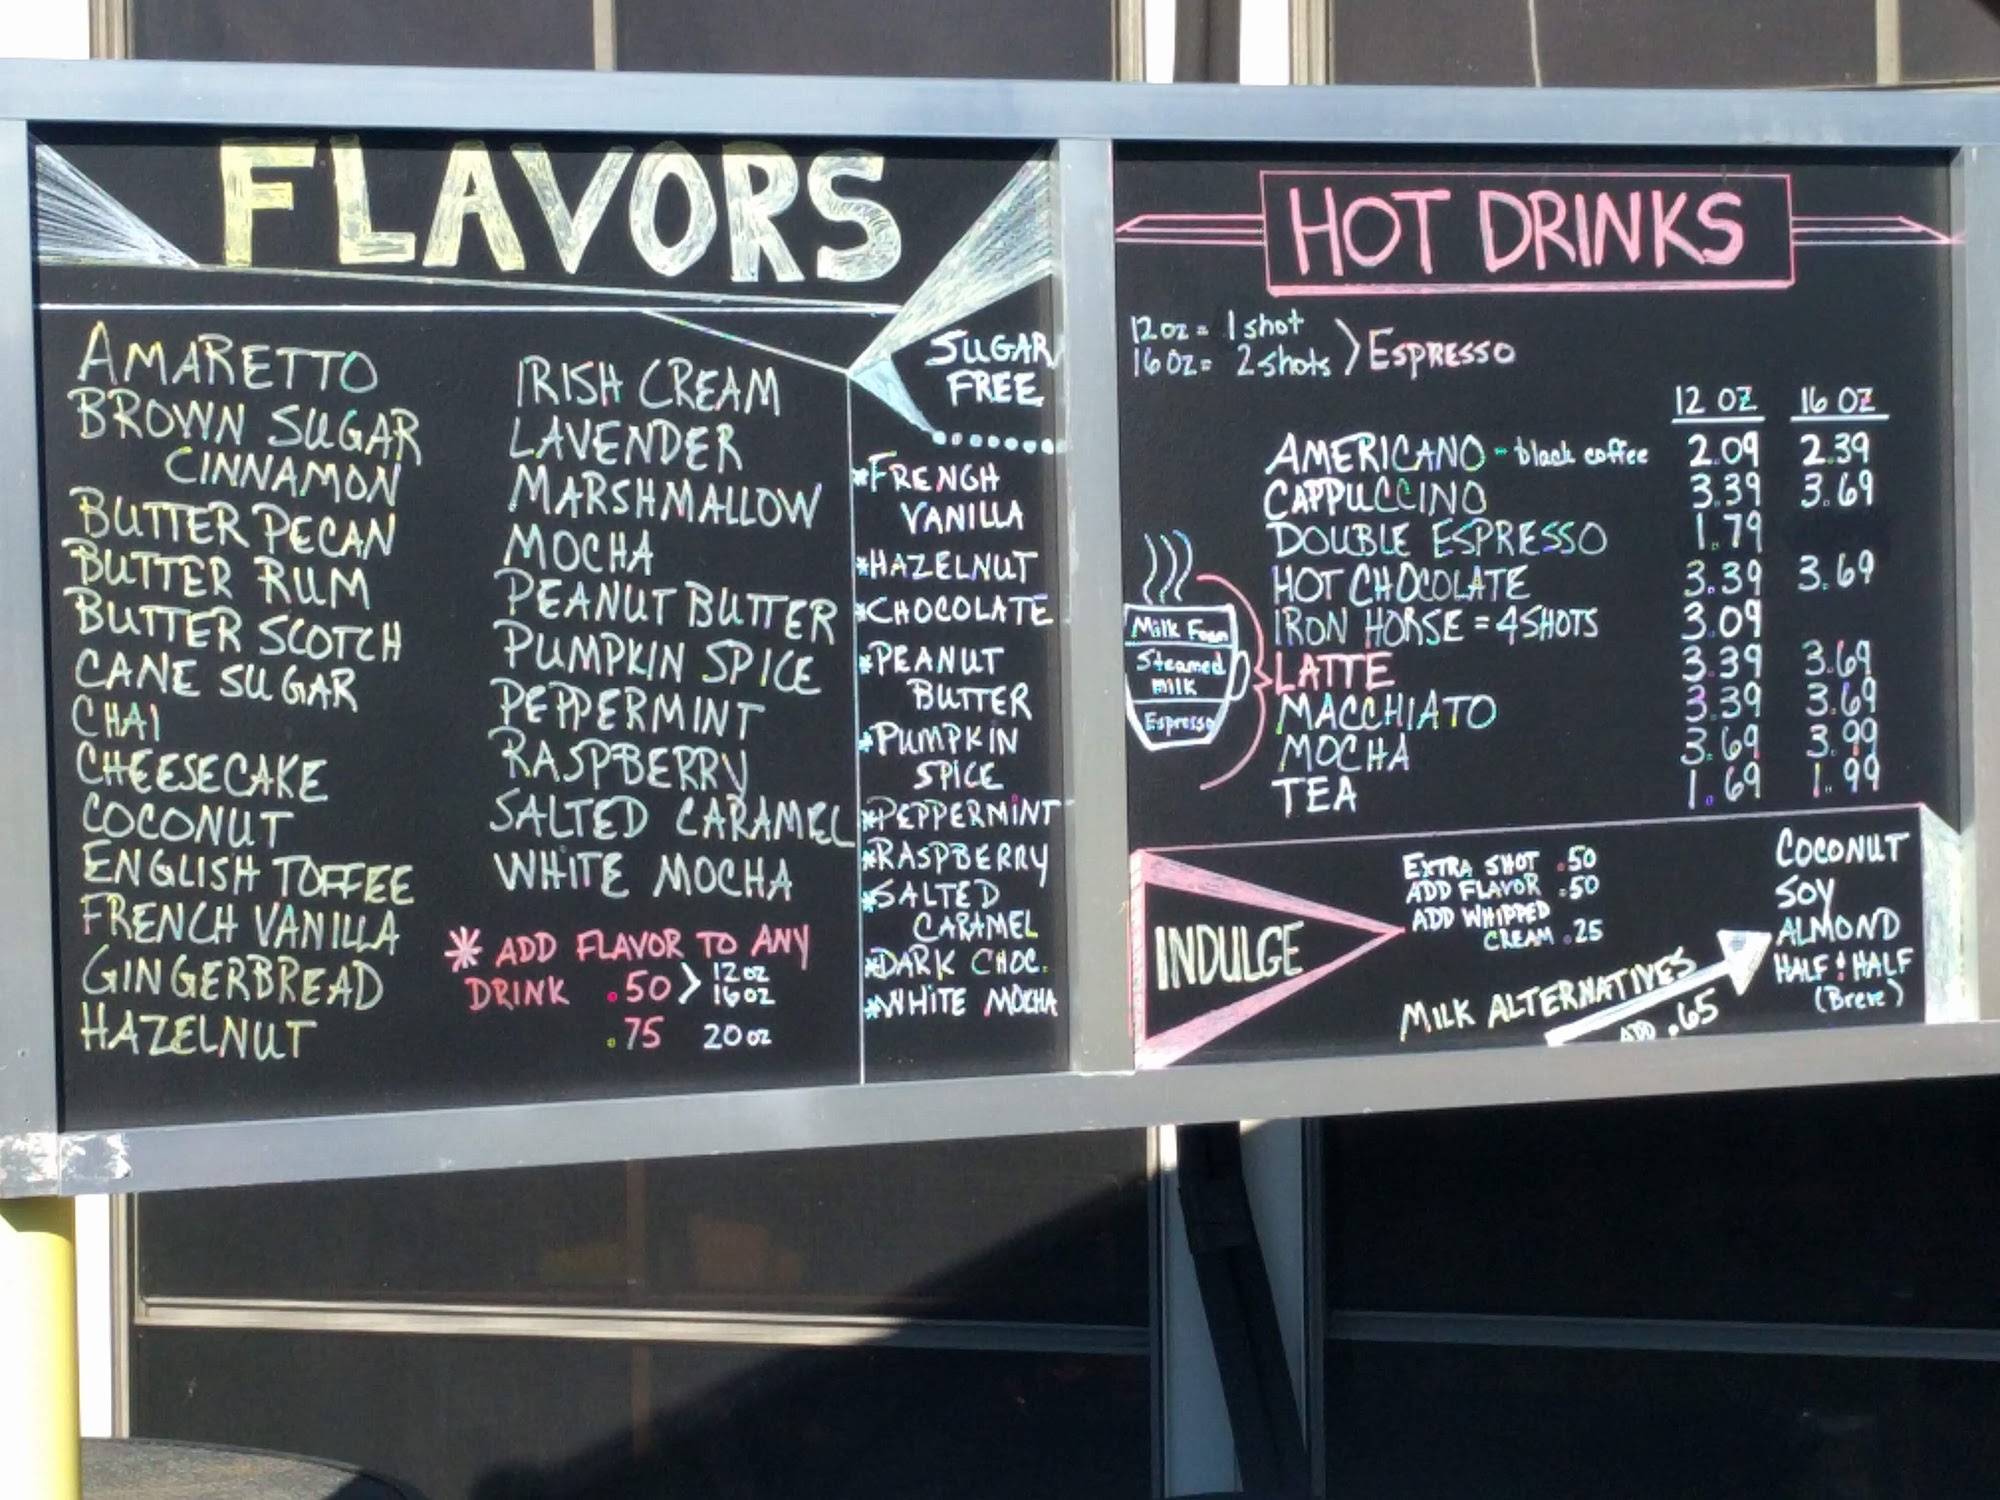 FLAVORS
AMARETTO
BROWN SUGAR
CINNAMON
BUTTER PECAN
BUTTER RUM
BUTTER SCOTCH
CANE SUGAR
CHAI
CHEESECAKE
COCONUT
ENGLISH TOFFEE
FRENCH VANILLA
GINGERBREAD
HAZELNUT
IRISH CREAM
LAVENDER
MARSHMALLOW
MOCHA
PEANUT BUTTER
PUMPKIN SPICE
PEPPERMINT
RASPBERRY
SALTED CARAMEL
WHITE MOCHA
* ADD FLAVOR TO ANY
DRINK .50 > 12oz
16oz
.75 20oz
SUGAR
FREE
*FRENCH
VANILLA
*HAZELNUT
*CHOCOLATE
*PEANUT
BUTTER
*PUMPKIN
SPICE
*PEPPERMINT
*RASPBERRY
*SALTED
CARAMEL
*DARK CHOC.
*WHITE MOCHA
HOT DRINKS
12oz = 1 shot
16oz = 2 shots > ESPRESSO
12 OZ 16 OZ
AMERICANO - black coffee 2.09 2.39
CAPPUCCINO 3.39 3.69
DOUBLE ESPRESSO 1.79
HOT CHOCOLATE 3.39 3.69
IRON HORSE = 4 SHOTS 3.09
LATTE 3.39 3.69
MACCHIATO 3.39 3.69
MOCHA 3.69 3.99
TEA 1.69 1.99
Milk Foam
Steamed
Milk
Espresso
INDULGE
EXTRA SHOT .50
ADD FLAVOR .50
ADD WHIPPED
CREAM .25
MILK ALTERNATIVES
ADD .65
COCONUT
SOY
ALMOND
HALF & HALF
(Breve)